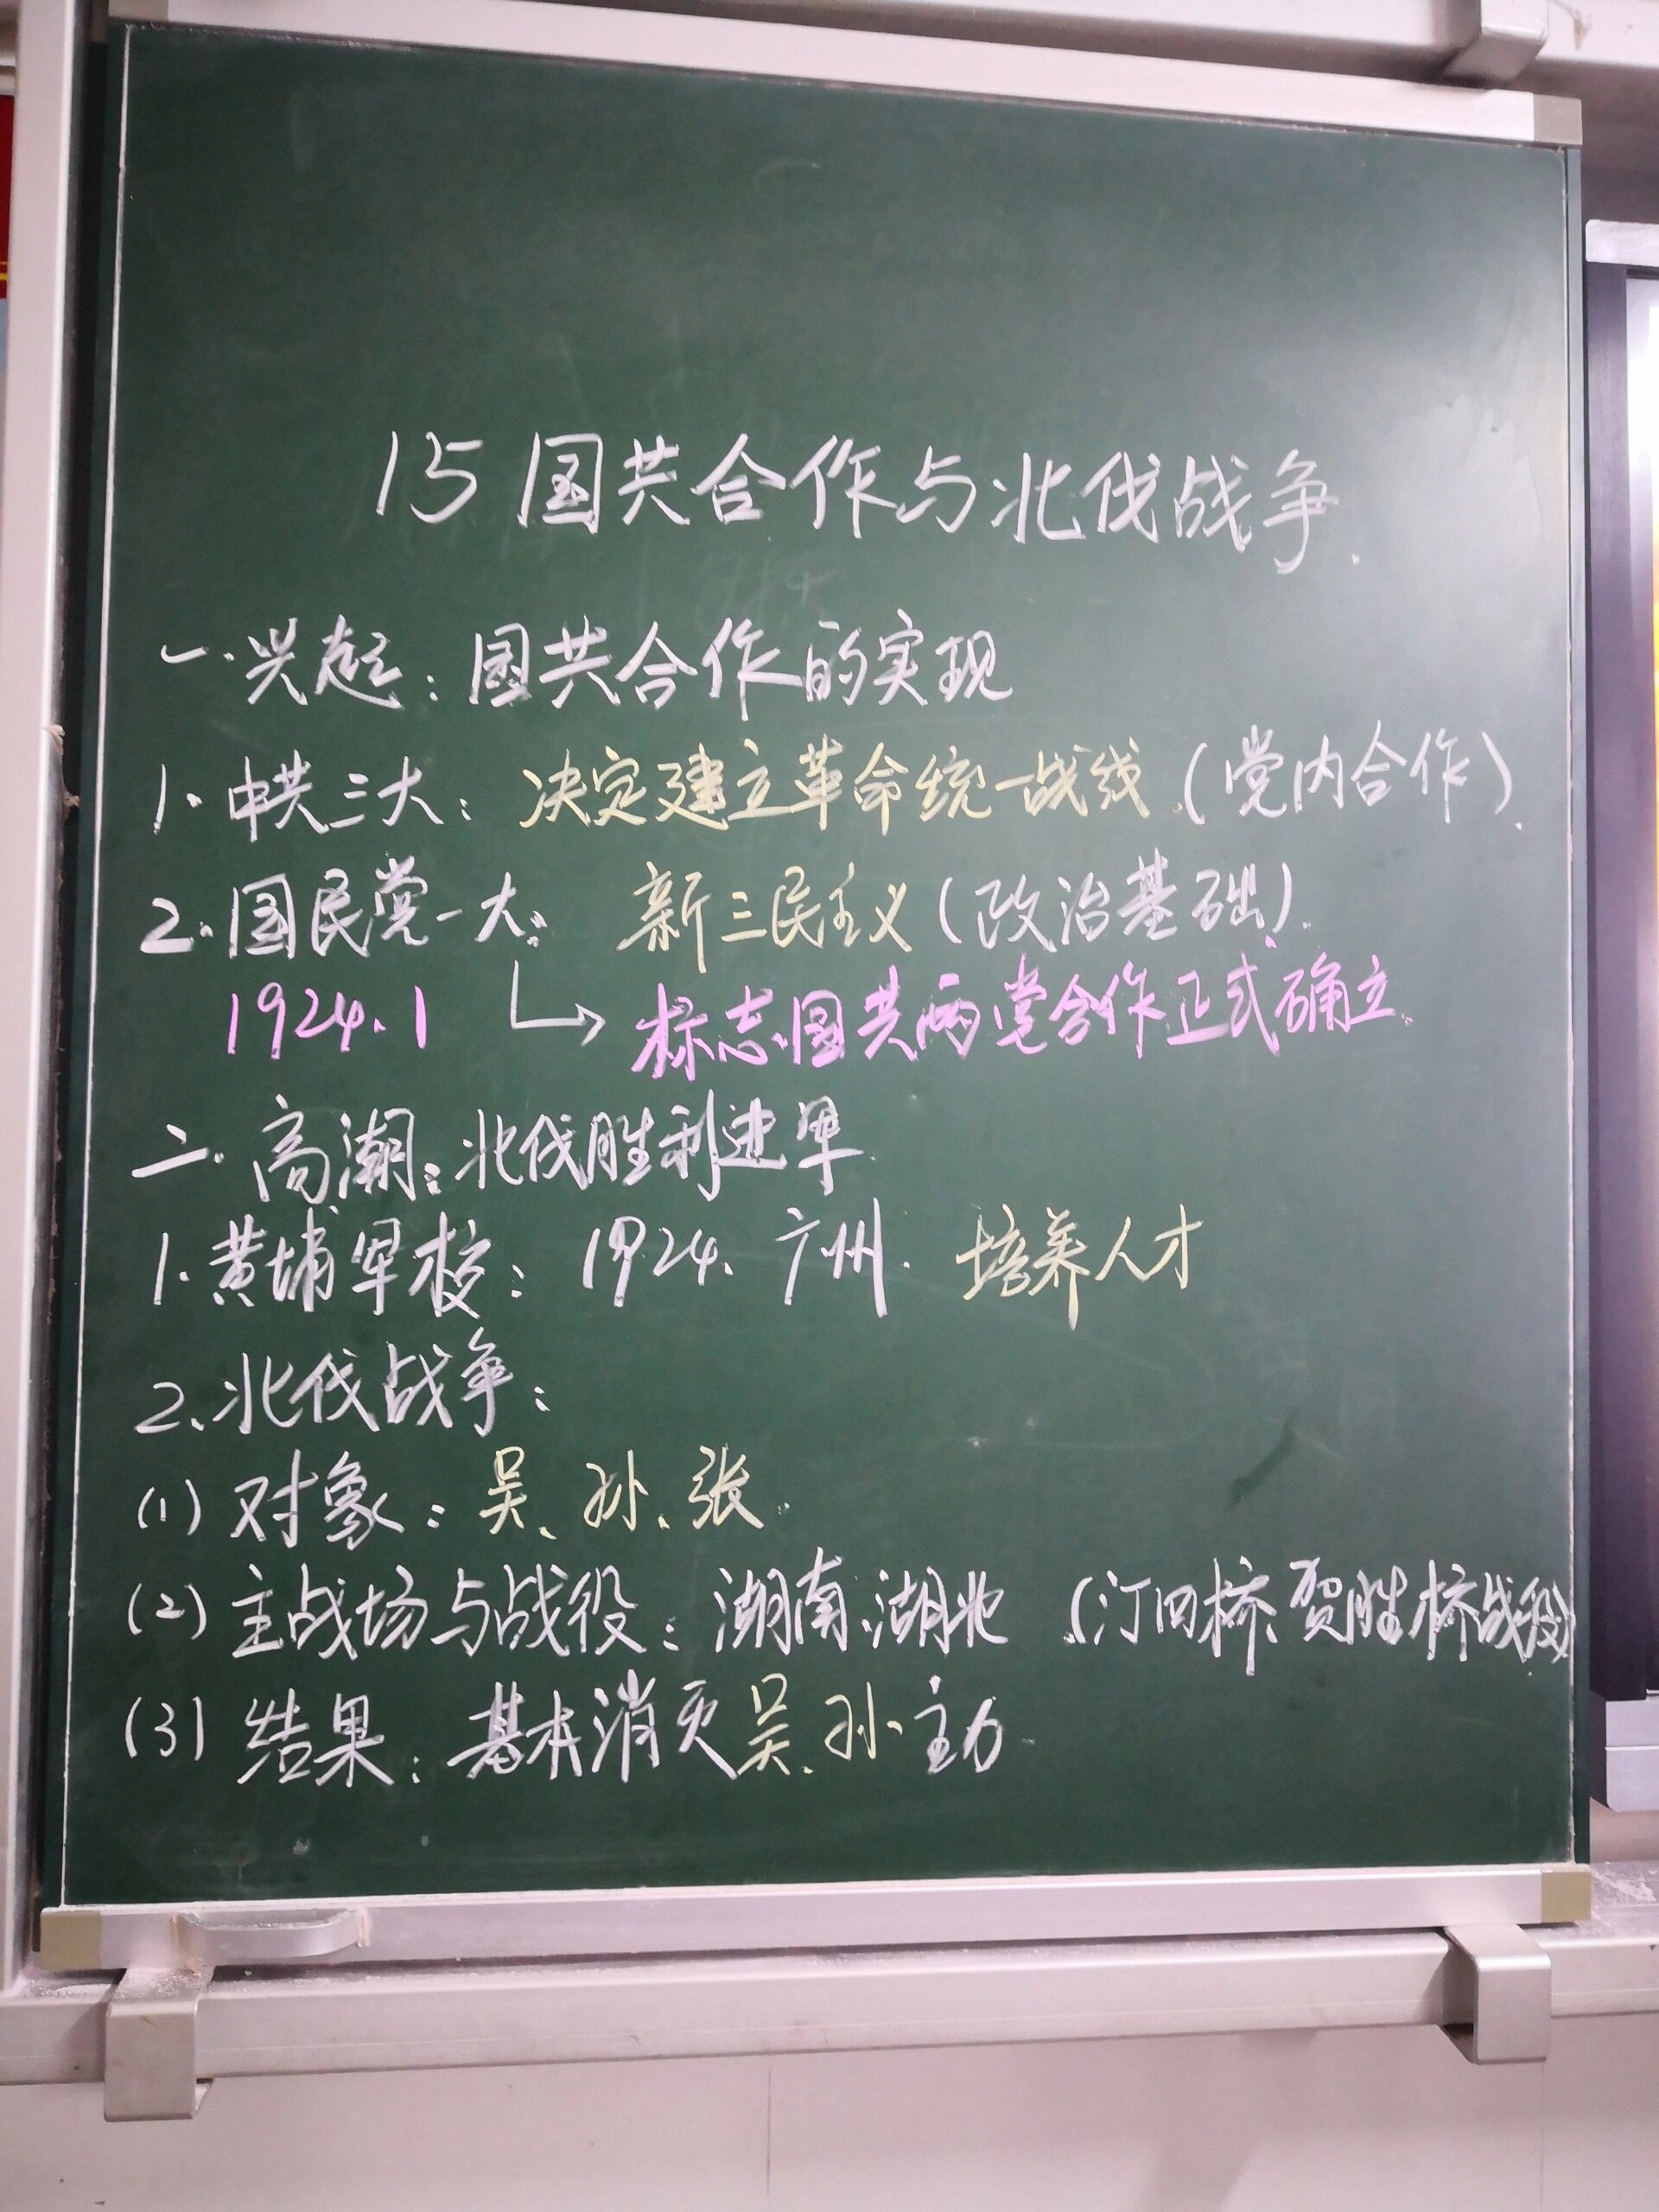 15 国共合作与北伐战争.
一.兴起:国共合作的实现
1.中共三大:决定建立革命统一战线.(党内合作).
2.国民党一大: 新三民主义(政治基础).
1924.1 ↳标志国共两党合作正式确立.
二.高潮:北伐胜利进军.
1.黄埔军校: 1924. 广州. 培养人才
2.北伐战争:
(1)对象:吴、孙、张.
(2)主战场与战役:湖南、湖北 (汀四桥、贺胜桥战役)
(3)结果:基本消灭吴、孙主力.